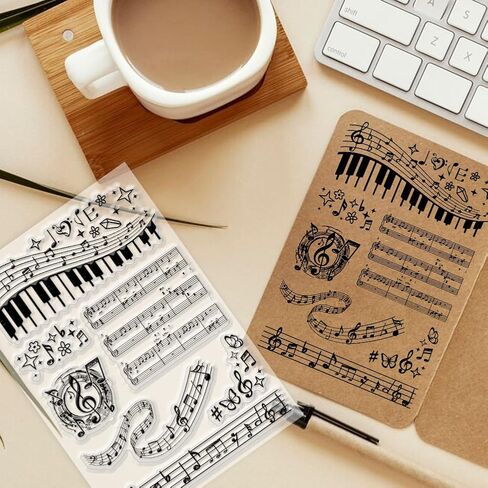 shift
control
A
S
Z
X
LOVE
LOVE
#
#